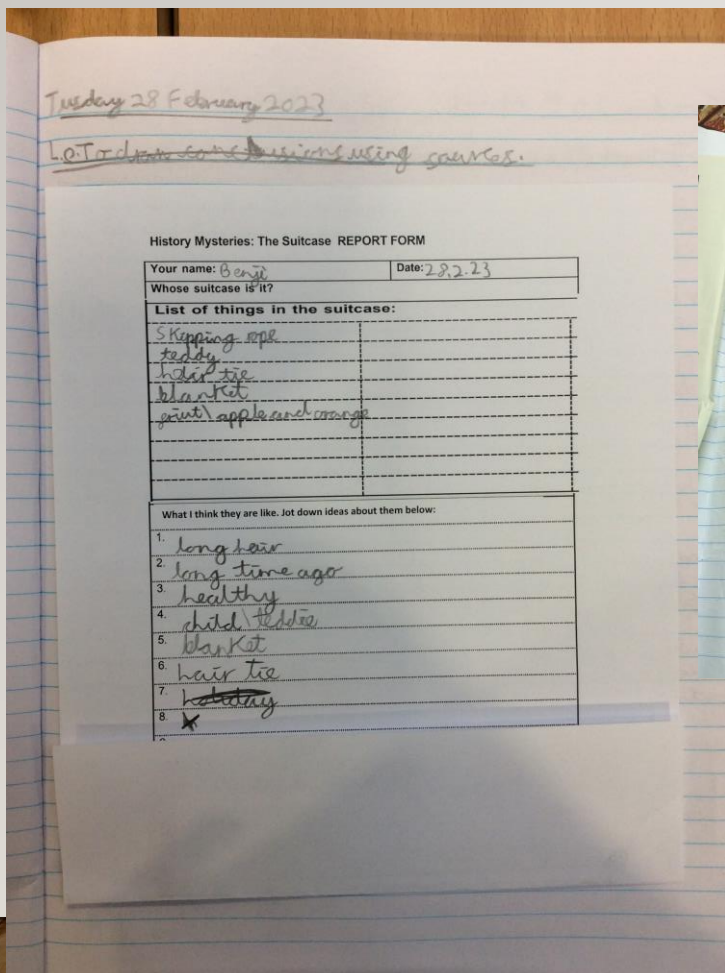 Tusday 28 February 2023
L.O.To draw conclusions using sources.
History Mysteries: The Suitcase REPORT FORM
Your name: Benji Date: 28.2.23
Whose suitcase is it?
List of things in the suitcase:
Skipping rope
teddy
hair tie
blanket
fruit\ apple and orange
What I think they are like. Jot down ideas about them below:
1. long hair
2. long time ago
3. healthy
4. child\teddie
5. blanket
6. hair tie
7. holiday
8.